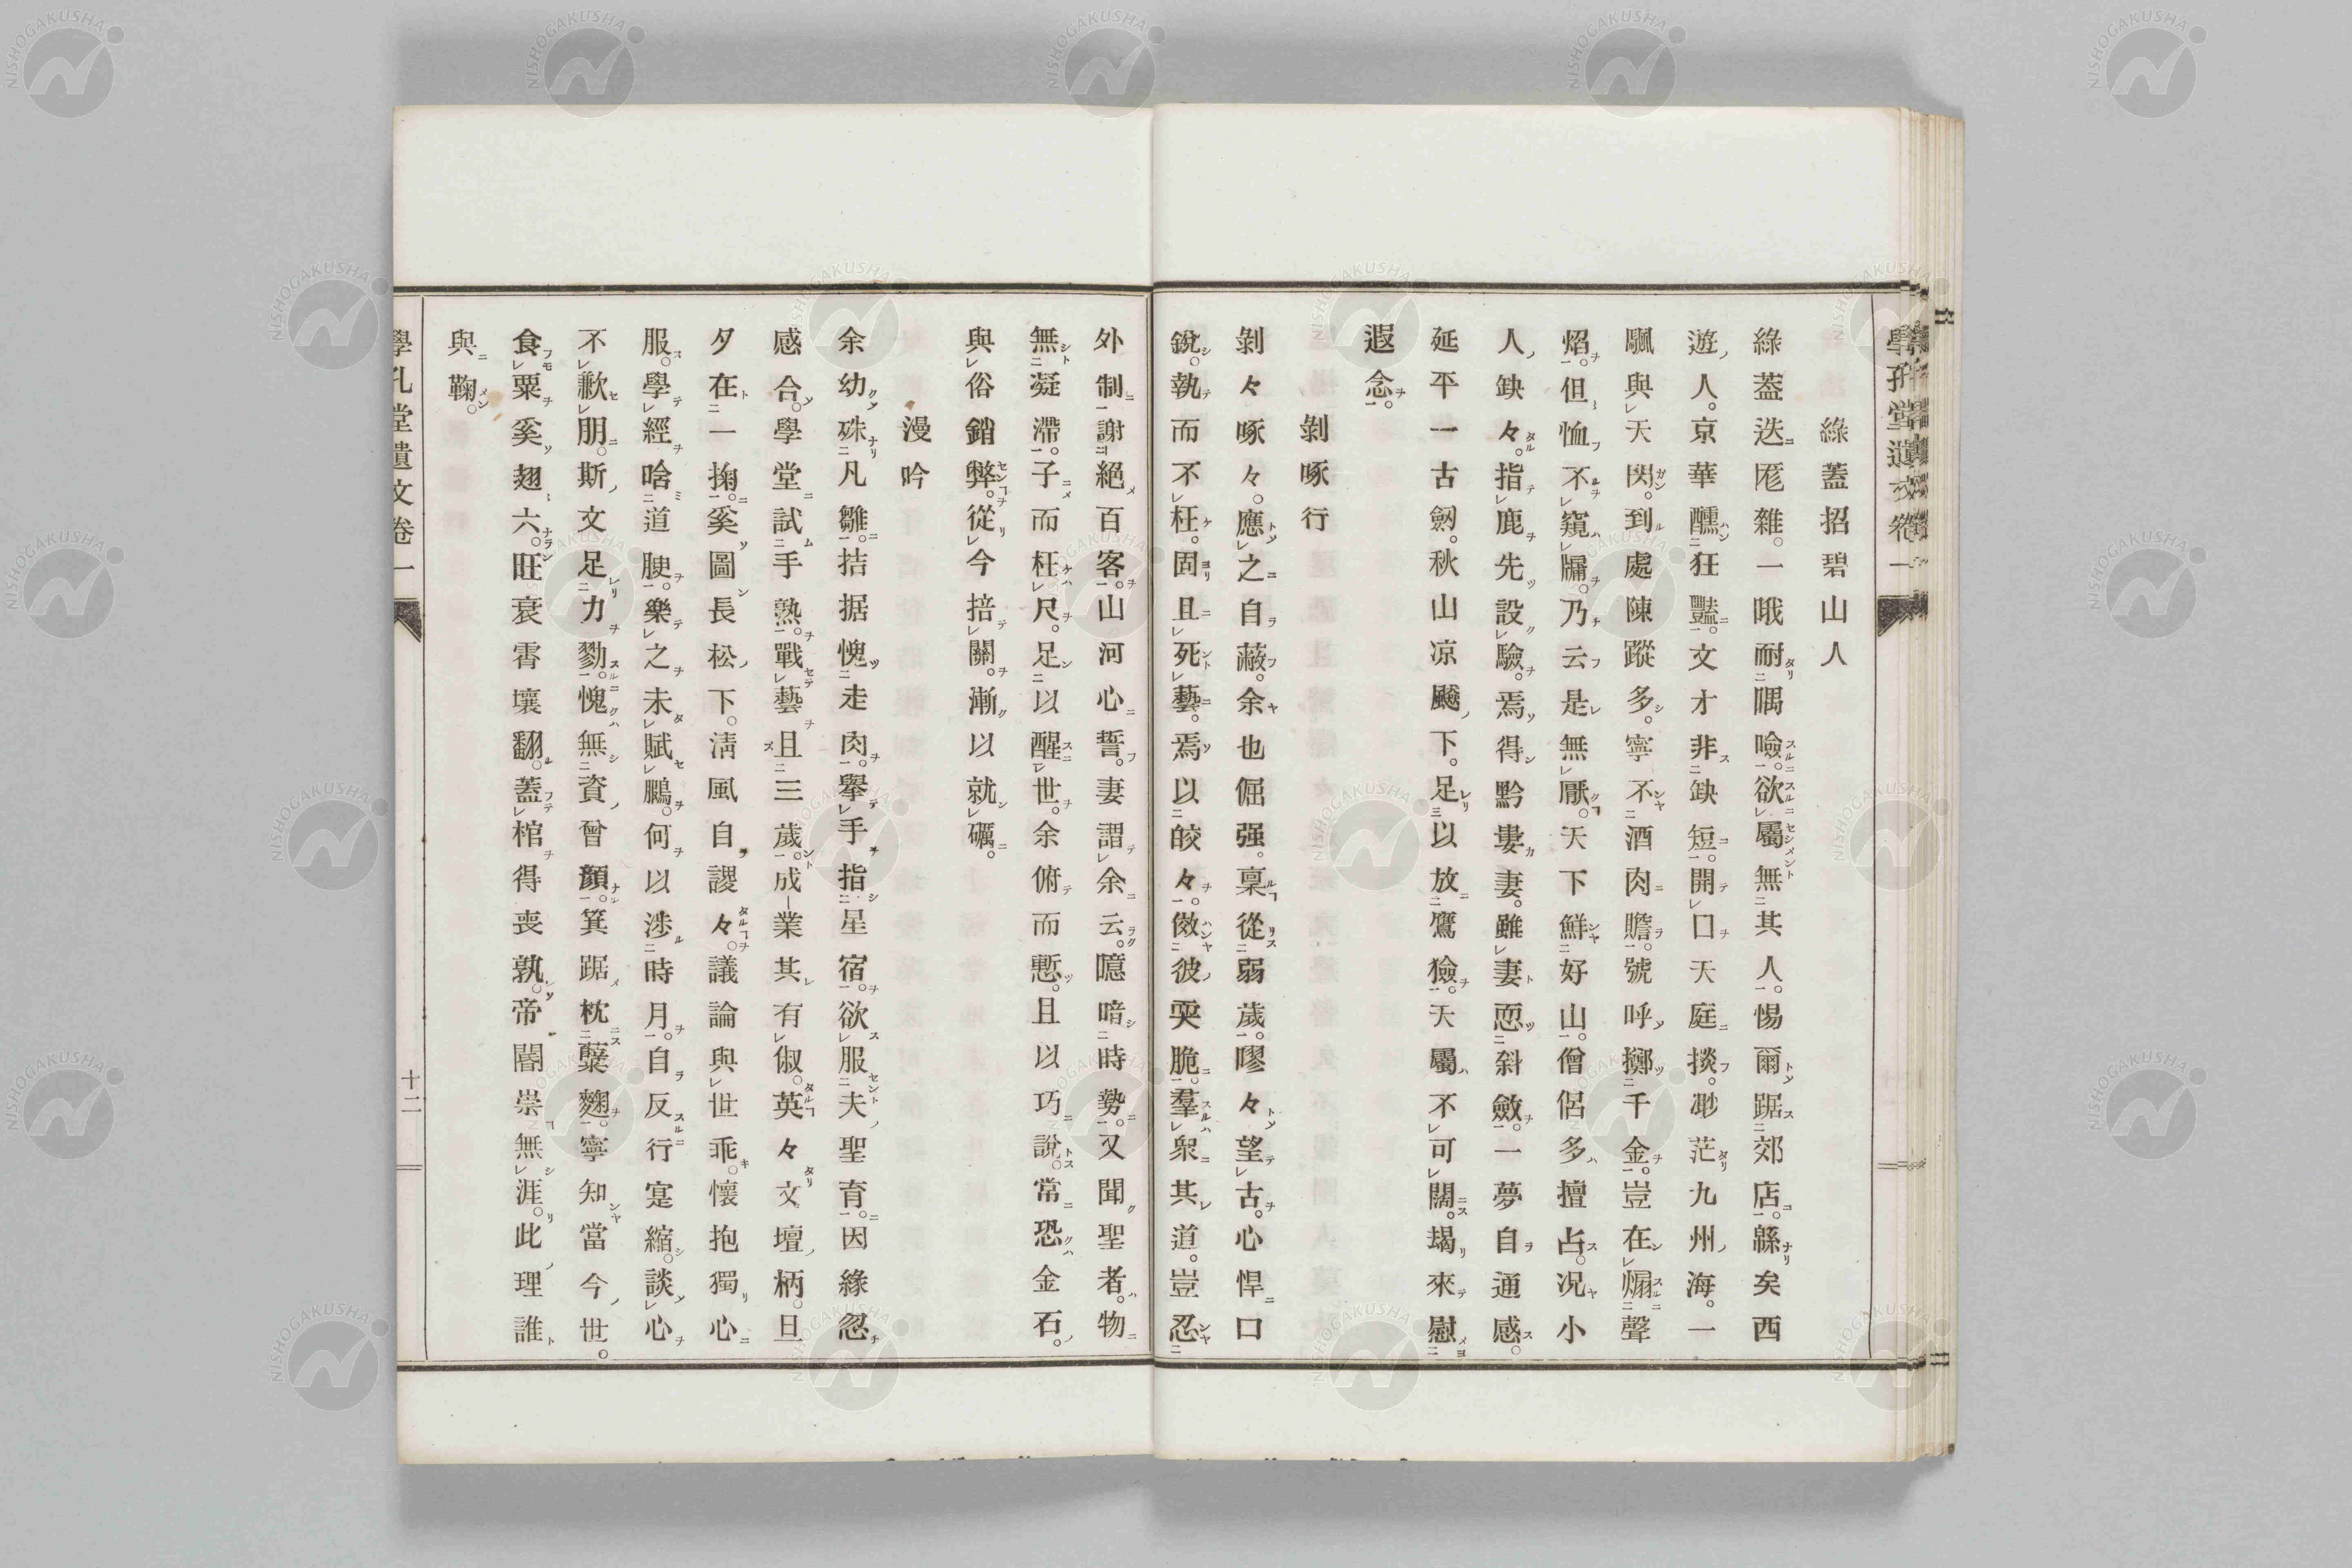 學孔堂遺文卷一
綠蓋招碧山人
綠蓋迭尨雜。一哦耐隅嶮。欲屬無其人。惕爾踞郊店。緜矣西
遊人。京華醺狂豔。文才非缺短。開口天庭掞。渺茫九州海。一
颿與天閃。到處陳蹤多。寧不酒肉贍。號呼擲千金。豈在煽聲
焰。但恤不窺牖。乃云是無厭。天下鮮好山。僧侶多擅占。况小
人缺々。指鹿先設驗。焉得黔婁妻。雖妻恧斜斂。一夢自通感。
延平一古劒。秋山凉飇下。足以放鷹獫。天屬不可闊。朅來慰
遐念。
剝啄行
剝々啄々。應之自蔽。余也倔强。稟從弱歲。嘐々望古。心悍口
銳。執而不枉。固且死藝。焉以皎々。傚彼耎脆。羣衆其道。豈忍
外制。謝絕百客。山河心誓。妻謂余云。噫暗時勢。又聞聖者。物
無凝滯。子而枉尺。足以醒世。余俯而慙。且以巧說。常恐金石。
與俗銷弊。從今掊關。漸以就礪。
漫吟
余幼硃凡雛。拮据愧走肉。擧手指星宿。欲服夫聖育。因緣忽
感合。學堂試手熟。戰藝且三歲。成業其有俶。英々文壇柄。旦
夕在一掬。奚圖長松下。淸風自謖々。議論與世乖。懷抱獨心
服。學經啥道腴。樂之未賦鵩。何以涉時月。自反行寔縮。談心
不歉朋。斯文足力勠。愧無資曾顏。箕踞枕糵麴。寧知當今世。
食粟奚翅六。旺衰霄壤翻。蓋棺得喪孰。帝閽崇無涯。此理誰
與鞠。
學孔堂遺文卷一
十二
NISHOGAKUSHA